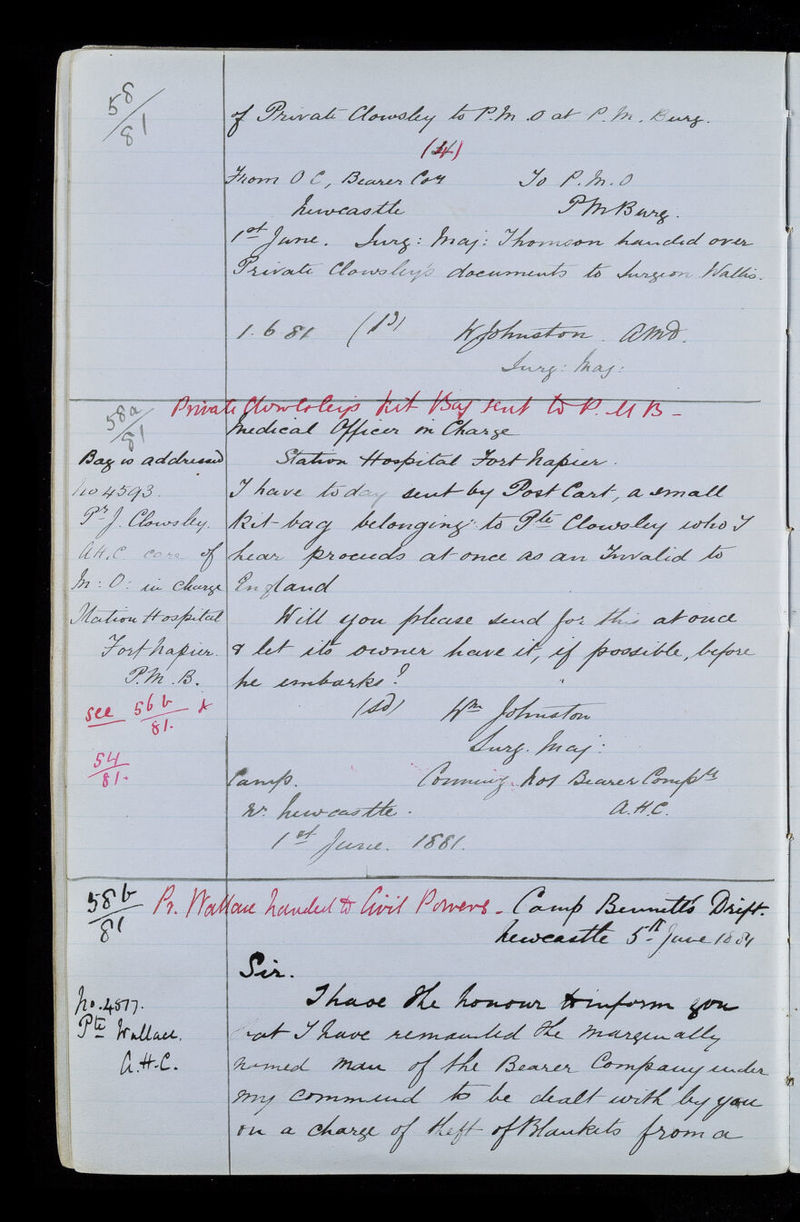 58/81
of Private Clowsley to P.M.O at P.M.Burg.
(4)
From O C, Bearer Coy To P.M.O
Newcastle PMBurg.
1st June. Surg: Maj: Thomson handed over
Private Clowsley's documents to Surgeon Wallis.
1.6.81 W Johnston. AMD.
Surg: Maj:
58a/81
Private Clowsleys Kit Bag sent to P.M B-
Medical Officer in Charge
Station Hospital Fort Napier.
Bag is addressed
No 4593.
Pr J. Clowsley.
A.H.C care of
M: O: in charge
Station Hospital
Fort Napier.
P.M.B.
see 56b/81. &
54/81.
I have today sent by Post Cart, a small
Kit-bag belonging to Pte Clowsley who I
hear proceeds at once as an Invalid to
England
Will you please send for this at once
& let its owner have it, if possible, before
he embarks?
(sd) Wm Johnston
Surg. Maj:
Camp. Comming. No1 Bearer Compy
Nr Newcastle. A.H.C.
1st June. 1881.
58b/81
Pr. Wallace handed to Civil Powers - Camp Bennett's Drift.
Newcastle 5th June 1881
Sir.
No.4577.
Pte Wallace.
A.H.C.
I have the honour to inform you
that I have remanded the marginally
named man of the Bearer Company under
my command to be dealt with by you
on a charge of theft of Blankets from a